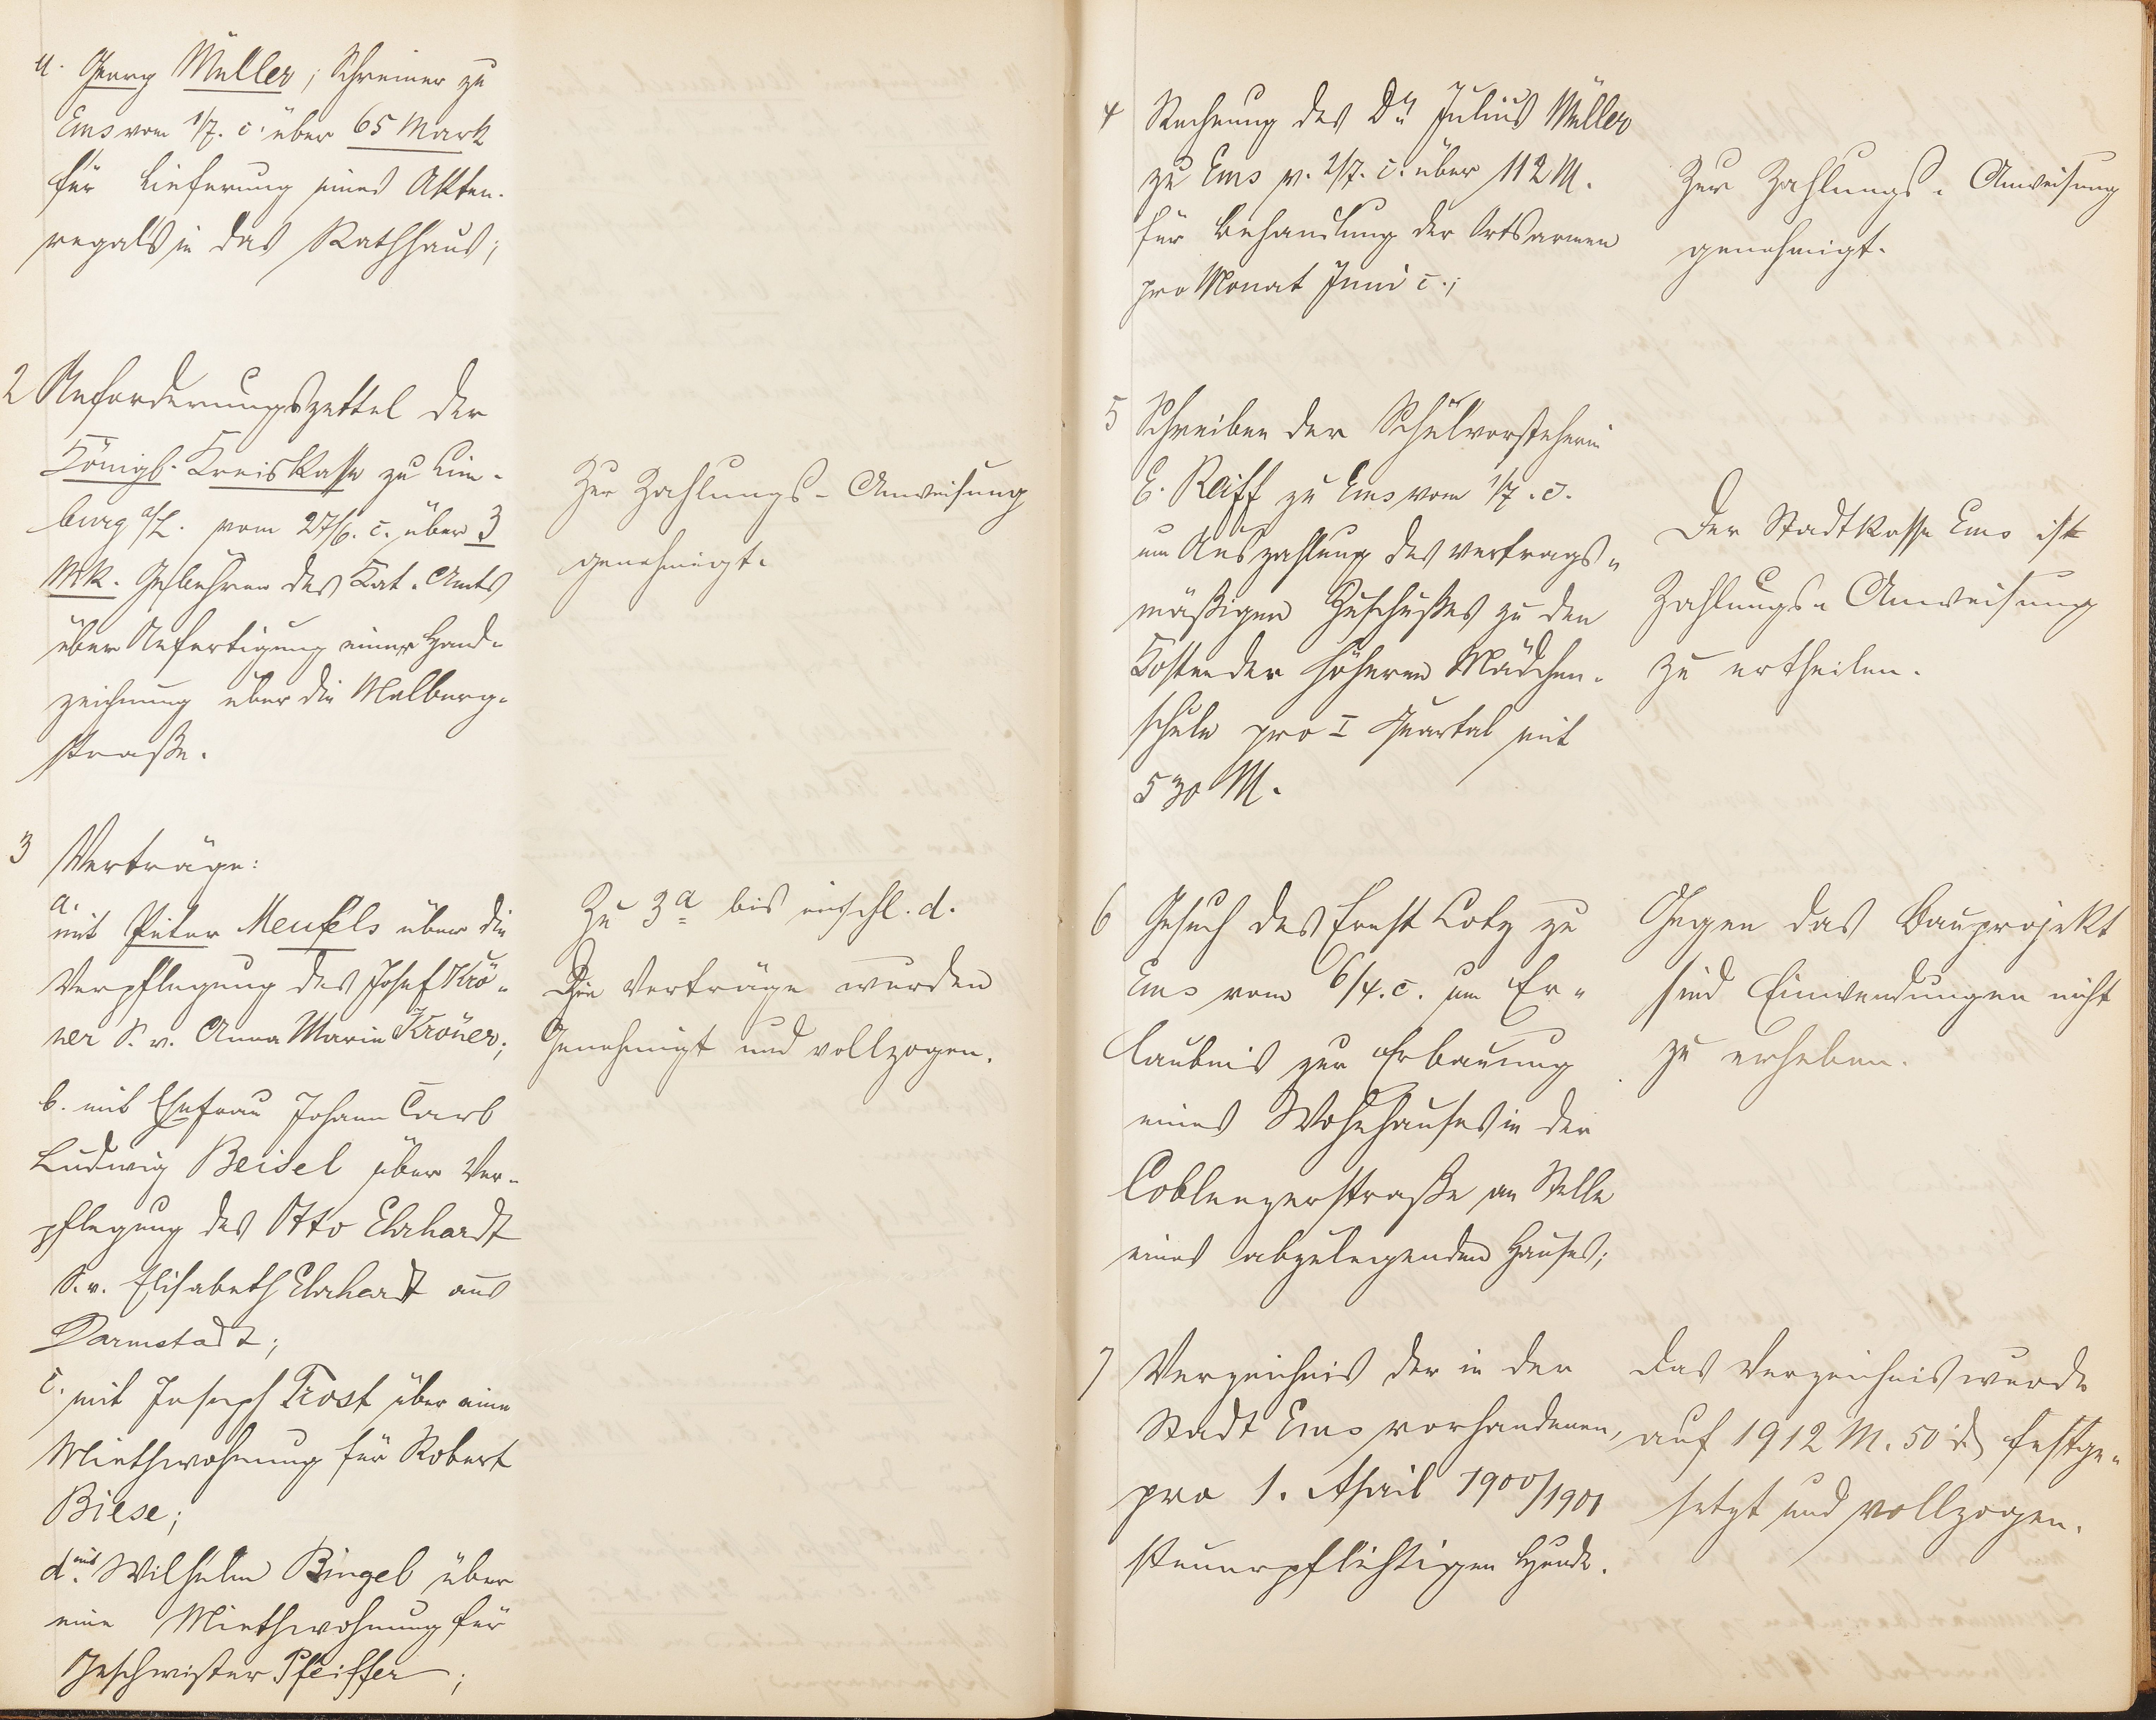 u. Georg Müller, Schreiner zu
Ems vom 1/7. c. über 65 Mark
für Lieferung eines Akten-
regals in das Rathhaus;
2 Anforderungszettel der
Königl. Kreiskasse zu Lim-
burg a/L. vom 27/6. c. über 3
Mk. Gebühren des Kat. Amts
über Anfertigung einer Hand-
zeichnung über die Malberg-
straße.
Zur Zahlungs-Anweisung
genehmigt.
3 Verträge:
a.
mit Peter Meufels über die
Verpflegung des Josef Krö-
ner S. v. Anna Maria Kröner;
b. mit Ehefrau Johann Carl
Ludwig Beisel über Ver-
pflegung des Otto Ehrhardt
S. v. Elisabeth Ehrhardt aus
Darmstadt;
c. mit Joseph Trost über eine
Miethwohnung für Robert
Biese;
d. mit Wilhelm Bingel über
eine Miethwohnung für
Geschwister Pfeiffer;
Zu 3a bis einschl. d.
Die Verträge wurden
Genehmigt und vollzogen.
4 Rechnung des Dr. Julius Müller
zu Ems v. 2/7. c. über 112 M.
für Behandlung der Ortsarmen
pro Monat Juni c.;
Zur Zahlungs-Anweisung
genehmigt.
5 Schreiben der Schulvorsteherin
E. Reiff zu Ems vom 1/7. c.
um Auszahlung des vertrags-
mäßigen Zuschußes zu den
Kosten der höheren Mädchen-
schule pro I Quartal mit
530 M.
Der Stadtkasse Ems ist
Zahlungs-Anweisung
zu ertheilen.
6 Gesuch des Ernst Lotz zu
Ems vom 6/4. c. um Er-
laubnis zur Erbauung
eines Wohnhauses in der
Coblenzerstraße an Stelle
eines abzulegenden Hauses;
Gegen das Bauprojekt
sind Einwendungen nicht
zu erheben.
7 Verzeichnis der in der
Stadt Ems vorhandenen,
pro 1. April 1900/1901
steuerpflichtigen Hunde.
Das Verzeichnis wurde
auf 1912 M. 50 d festge-
setzt und vollzogen.